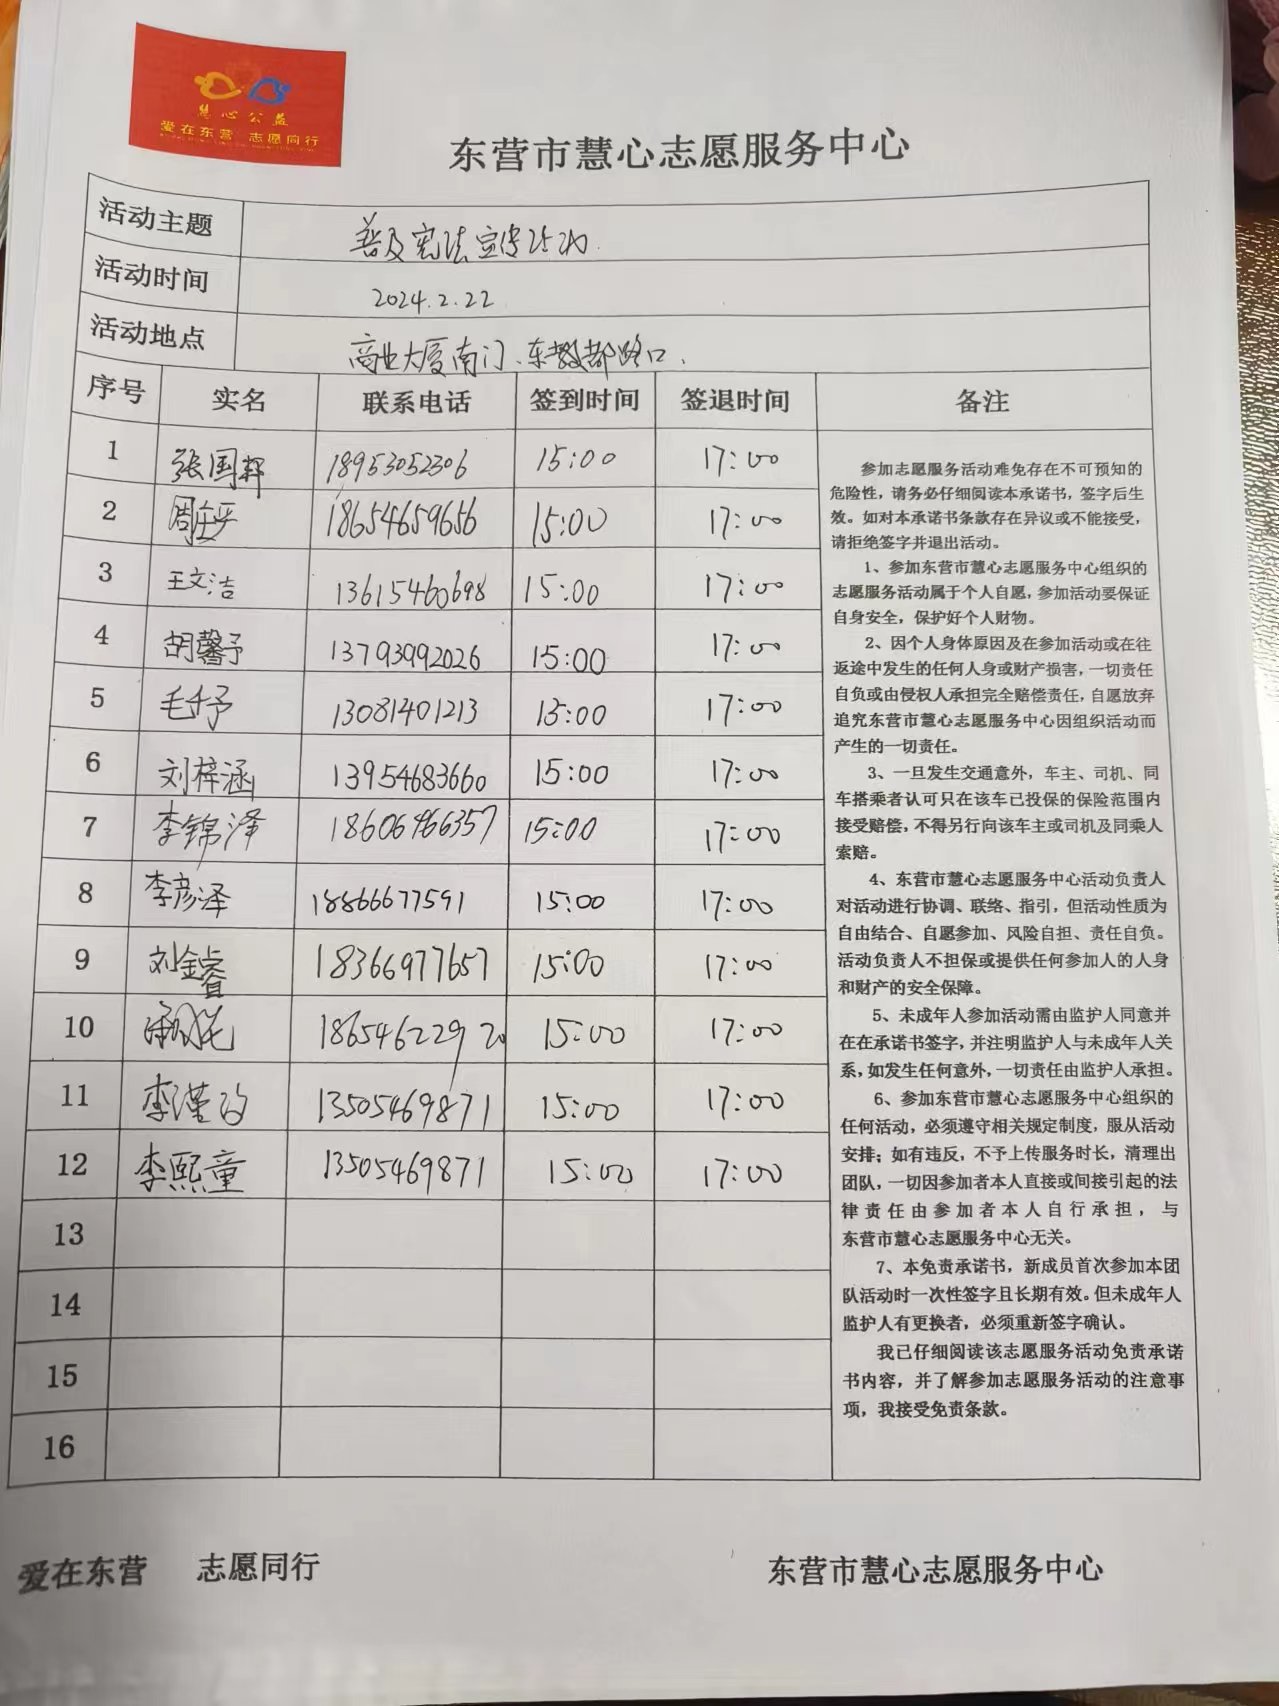 慧心公益
爱在东营 志愿同行
东营市慧心志愿服务中心
活动主题 普及宪法宣传活动.
活动时间 2024.2.22
活动地点 商业大厦南门、东都路口.
序号 实名 联系电话 签到时间 签退时间 备注
1 张国轩 18953052306 15:00 17:00
2 周 18654659656 15:00 17:00
3 王文洁 13615460698 15:00 17:00
4 胡馨予 13793992026 15:00 17:00
5 毛千予 13081401213 15:00 17:00
6 刘梓涵 13954683660 15:00 17:00
7 李锦泽 18606466357 15:00 17:00
8 李彦泽 18866677591 15:00 17:00
9 刘金睿 18366977657 15:00 17:00
10 18654622920 15:00 17:00
11 李瑾 13505469871 15:00 17:00
12 李熙童 13505469871 15:00 17:00
13
14
15
16
参加志愿服务活动难免存在不可预知的
危险性，请务必仔细阅读本承诺书，签字后生
效。如对本承诺书条款存在异议或不能接受，
请拒绝签字并退出活动。
1、参加东营市慧心志愿服务中心组织的
志愿服务活动属于个人自愿，参加活动要保证
自身安全，保护好个人财物。
2、因个人身体原因及在参加活动或在往
返途中发生的任何人身或财产损害，一切责任
自负或由侵权人承担完全赔偿责任，自愿放弃
追究东营市慧心志愿服务中心因组织活动而
产生的一切责任。
3、一旦发生交通意外，车主、司机、同
车搭乘者认可只在该车已投保的保险范围内
接受赔偿，不得另行向该车主或司机及同乘人
索赔。
4、东营市慧心志愿服务中心活动负责人
对活动进行协调、联络、指引，但活动性质为
自由结合、自愿参加、风险自担、责任自负。
活动负责人不担保或提供任何参加人的人身
和财产的安全保障。
5、未成年人参加活动需由监护人同意并
在在承诺书签字，并注明监护人与未成年人关
系，如发生任何意外，一切责任由监护人承担。
6、参加东营市慧心志愿服务中心组织的
任何活动，必须遵守相关规定制度，服从活动
安排；如有违反，不予上传服务时长，清理出
团队，一切因参加者本人直接或间接引起的法
律责任由参加者本人自行承担，与
东营市慧心志愿服务中心无关。
7、本免责承诺书，新成员首次参加本团
队活动时一次性签字且长期有效。但未成年人
监护人有更换者，必须重新签字确认。
我已仔细阅读该志愿服务活动免责承诺
书内容，并了解参加志愿服务活动的注意事
项，我接受免责条款。
爱在东营 志愿同行 东营市慧心志愿服务中心